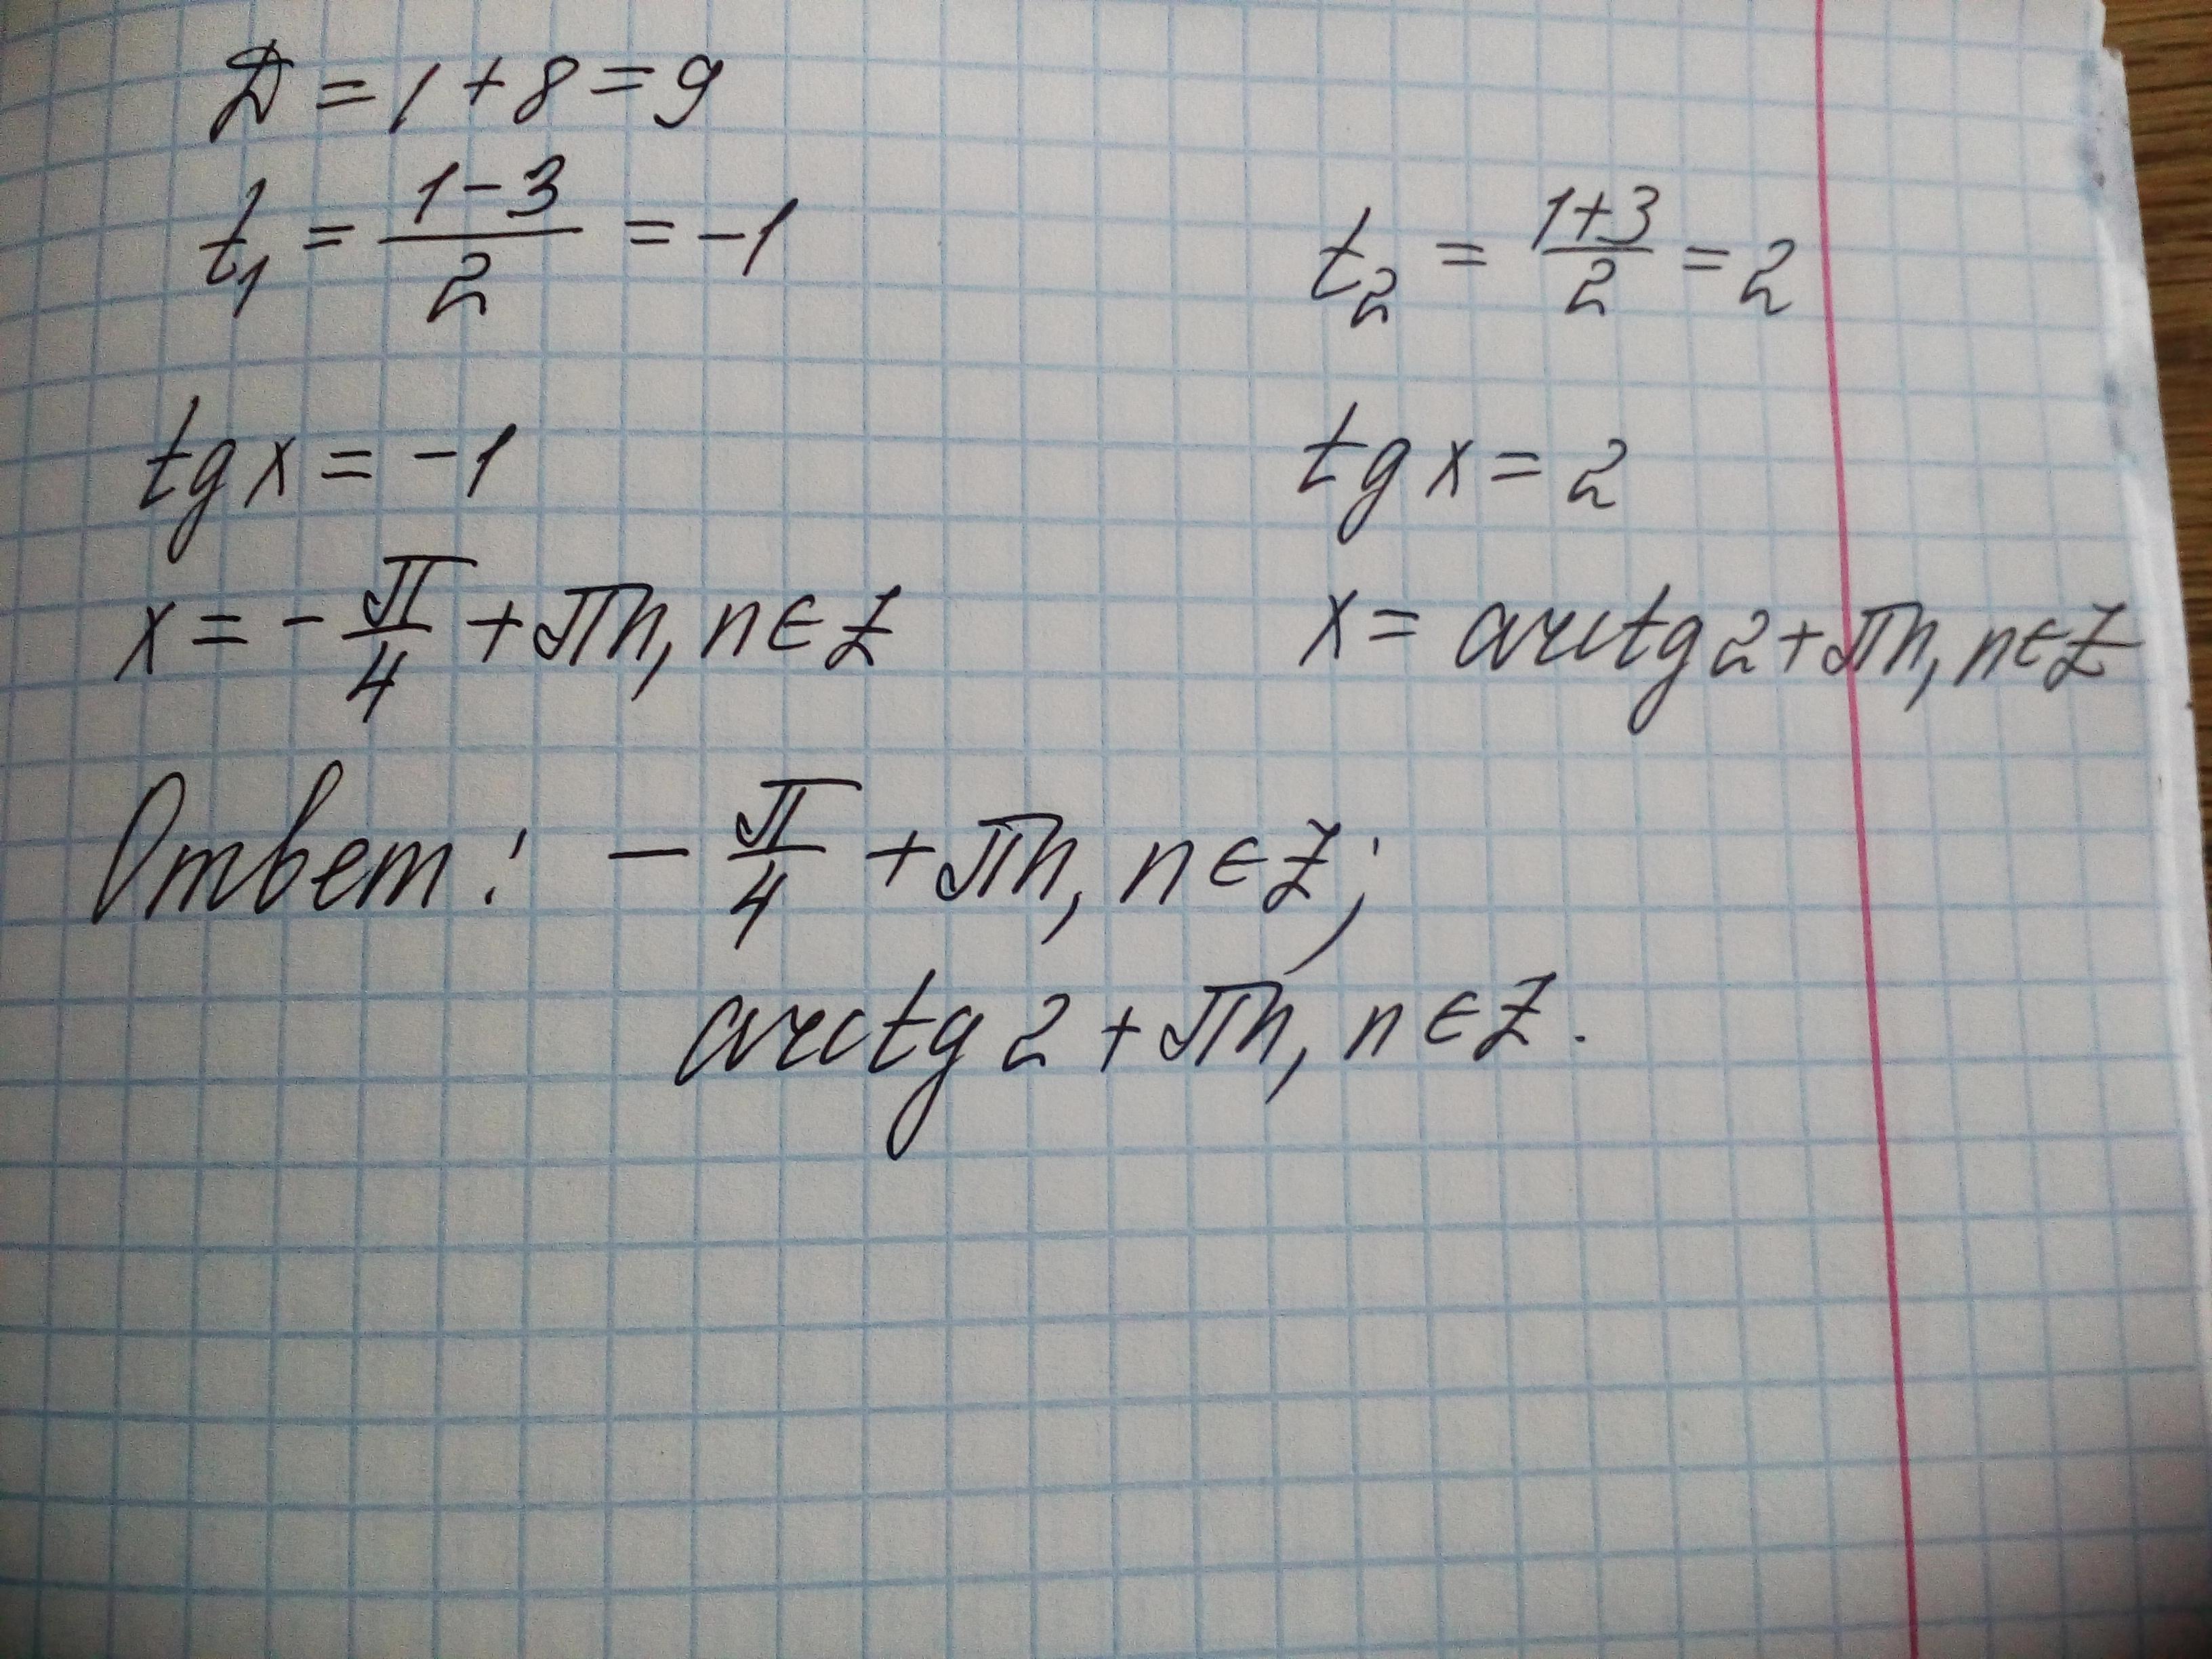 Д = 1 + 8 = 9
t₁ = (1 - 3)/2 = -1
t₂ = (1+3)/2 = 2
tg x = -1
tg x = 2
x = - π/4 + πn, n ∈ Z
x = arctg 2 + πn, n ∈ Z
Ответ: - π/4 + πn, n ∈ Z;
arctg 2 + πn, n ∈ Z.